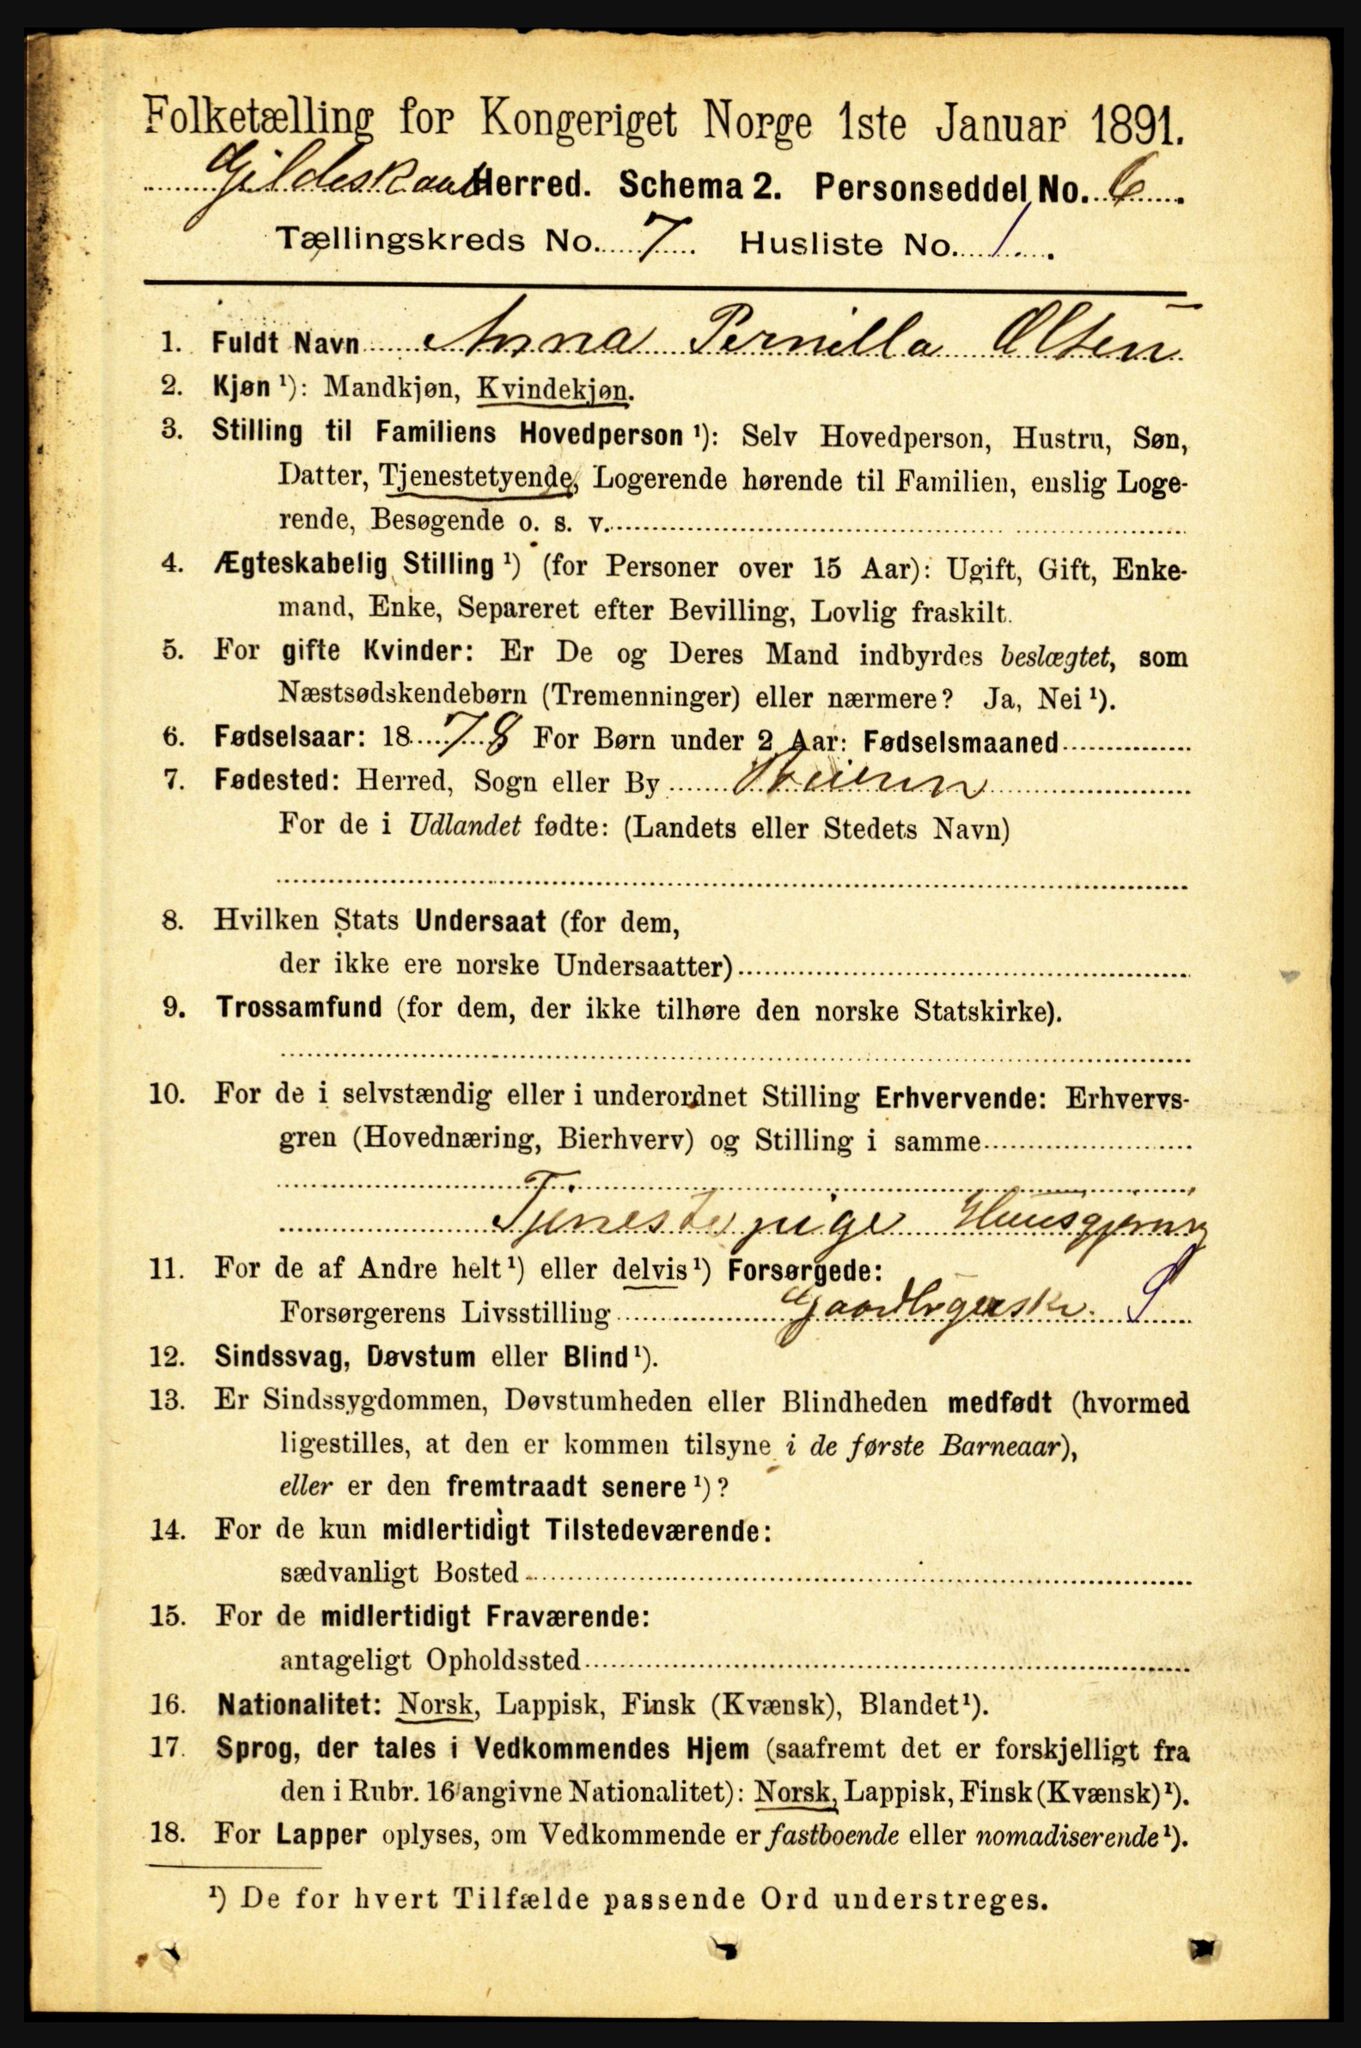 Folketælling for Kongeriget Norge 1ste Januar 1891.
Gildeskaal Herred. Schema 2. Personseddel No. 6.
Tællingskreds No. 7 Husliste No. 1.
1. Fuldt Navn Anna Pernilla Olsen
2. Kjøn ¹): Mandkjøn, Kvindekjøn.
3. Stilling til Familiens Hovedperson ¹): Selv Hovedperson, Hustru, Søn,
Datter, Tjenestetyende, Logerende hørende til Familien, enslig Loge-
rende, Besøgende o. s. v.
4. Ægteskabelig Stilling ¹) (for Personer over 15 Aar): Ugift, Gift, Enke-
mand, Enke, Separeret efter Bevilling, Lovlig fraskilt.
5. For gifte Kvinder: Er De og Deres Mand indbyrdes beslægtet, som
Næstsødskendebørn (Tremenninger) eller nærmere? Ja, Nei ¹).
6. Fødselsaar: 1878 For Børn under 2 Aar: Fødselsmaaned
7. Fødested: Herred, Sogn eller By Beieren
For de i Udlandet fødte: (Landets eller Stedets Navn)
8. Hvilken Stats Undersaat (for dem,
der ikke ere norske Undersaatter)
9. Trossamfund (for dem, der ikke tilhøre den norske Statskirke).
10. For de i selvstændig eller i underordnet Stilling Erhvervende: Erhvervs-
gren (Hovednæring, Bierhverv) og Stilling i samme
Tjenestepige Huusgjerning
11. For de af Andre helt ¹) eller delvis ¹) Forsørgede:
Forsørgerens Livsstilling Gaardbrugerske. S
12. Sindssvag, Døvstum eller Blind ¹).
13. Er Sindssygdommen, Døvstumheden eller Blindheden medfødt (hvormed
ligestilles, at den er kommen tilsyne i de første Barneaar),
eller er den fremtraadt senere ¹)?
14. For de kun midlertidigt Tilstedeværende:
sædvanligt Bosted
15. For de midlertidigt Fraværende:
antageligt Opholdssted
16. Nationalitet: Norsk, Lappisk, Finsk (Kvænsk), Blandet ¹).
17. Sprog, der tales i Vedkommendes Hjem (saafremt det er forskjelligt fra
den i Rubr. 16 angivne Nationalitet): Norsk, Lappisk, Finsk (Kvænsk) ¹).
18. For Lapper oplyses, om Vedkommende er fastboende eller nomadiserende ¹).
¹) De for hvert Tilfælde passende Ord understreges.